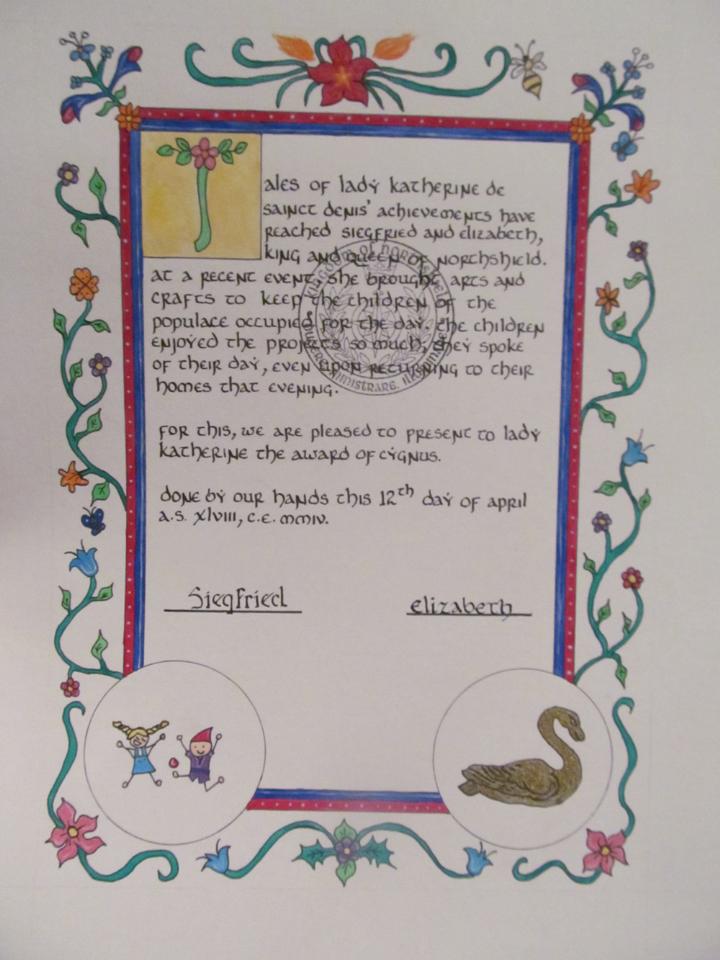 Tales of Lady Katherine de
Sainct Denis' achievements have
reached Siegfried and Elizabeth,
King and Queen of Northshield.
At a recent event, she brought arts and
crafts to keep the children of the
populace occupied for the day. The children
enjoyed the projects so much, they spoke
of their day, even upon returning to their
homes that evening.
For this, we are pleased to present to Lady
Katherine the Award of Cygnus.
Done by our hands this 12th day of April
A.S. XLVIII, C.E. MMIV.
Siegfried
Elizabeth
Kingdom of Northshield